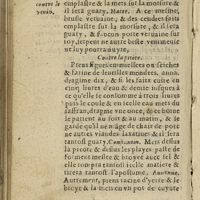 contre le
venin.
emplastre & la mets sur la morsure &
il sera guary. Autre. A ce mesme,
brusle vetuaine, & des cendres fais
emplastre sur la morsure, & il sera
guary, & si tu en porte vervaine sur
toy, serpent ne autre beste venimeuse
ne luy pourra nuyre.
Contre la pierre.
Prens figues en mielleies ou seiches
& farine de lentilles mondees, ana.
dragme dix, & les faite cuire en
cinq liures d'eau de demis iusques à
ce qu'elle se consomme à trois liures
puis le coule & en icelle eau mets du
saffran, dragme vne once, & en donne
le patient au soir & au matin, & le
garde qu'il ne māge de chair de porc
ne autres viandes laxatiues & il sera
tantost guary. Mets dessus
la picote & dessus les playes paste de
forment mesles & broyee auec sel &
elle rompra tantost icelle matiere &
tirera tantost l'apostume. Autrement,
Autrement, prens racine d'yerre & le
broye & la mets en vn pot de cuyure